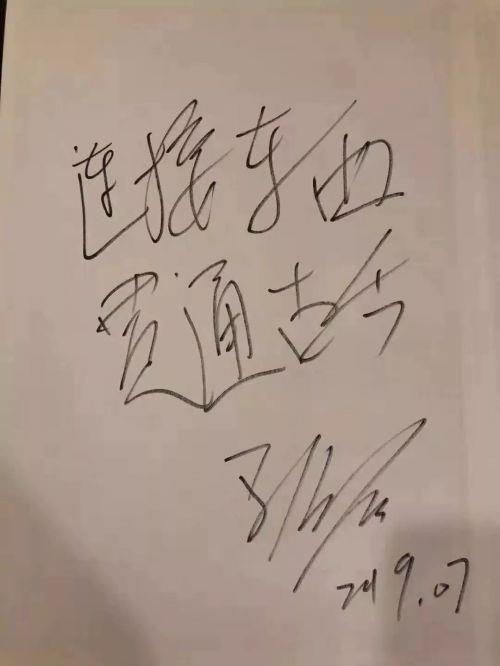 连接东西
贯通古今
2019.07